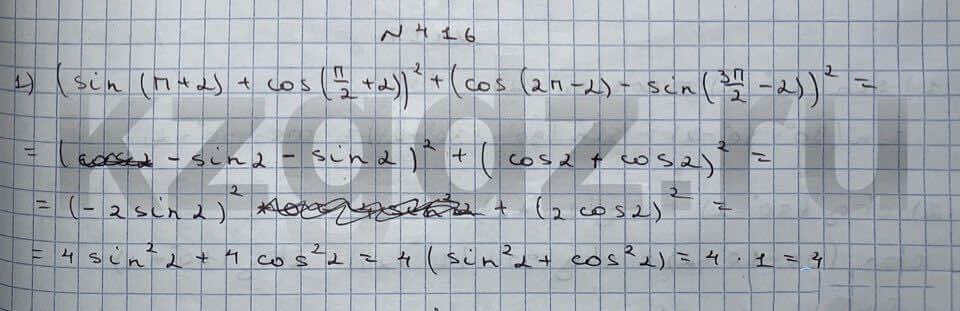 N 416
1) (sin (π+2) + cos (π/2 +2))² + (cos (2π-2) - sin (3π/2 - 2))² =
= (- sin2 - sin2)² + (cos2 + cos2)² =
= (-2sin2)² + (2 cos2)² =
= 4 sin²2 + 4 cos²2 = 4 (sin²2 + cos²2) = 4 · 1 = 4
kzgdz.ru